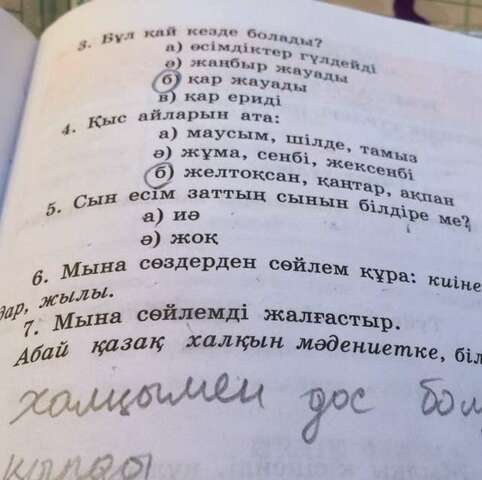 3. Бұл қай кезде болады?
а) өсімдіктер гүлдейді
ә) жаңбыр жауады
б) қар жауады
в) қар ериді
4. Қыс айларын ата:
а) маусым, шілде, тамыз
ә) жұма, сенбі, жексенбі
б) желтоқсан, қаңтар, ақпан
5. Сын есім заттың сынын білдіре ме?
а) иә
ә) жоқ
6. Мына сөздерден сөйлем құра: киіне
дар, жылы.
7. Мына сөйлемді жалғастыр.
Абай қазақ халқын мәдениетке, біл
халқымен дос бол